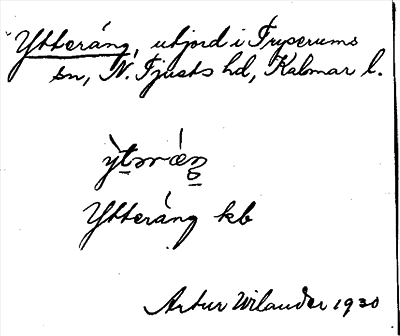 Ytteráng, utjord i Tryserums
sn, N. Tjusts hd, Kalmar l.
Ytteráng kb
Artur Wilander 1930